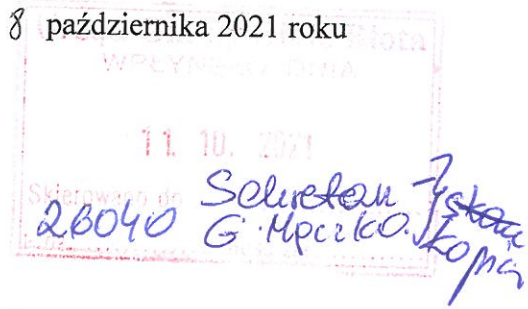 8 października 2021 roku
WPŁYNĘŁO DNIA
11. 10. 2021
Skierowano do
Sekretarz
26040 G. Męczko.
kopia